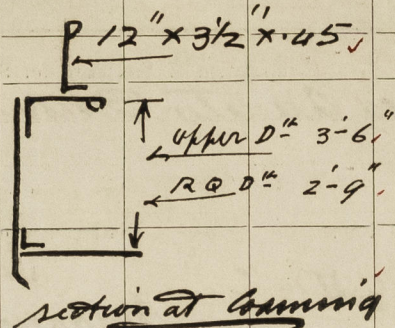 12" x 3½" x .45
upper Dk 3'-6"
R Q Dk 2'-9"
section at Coaming